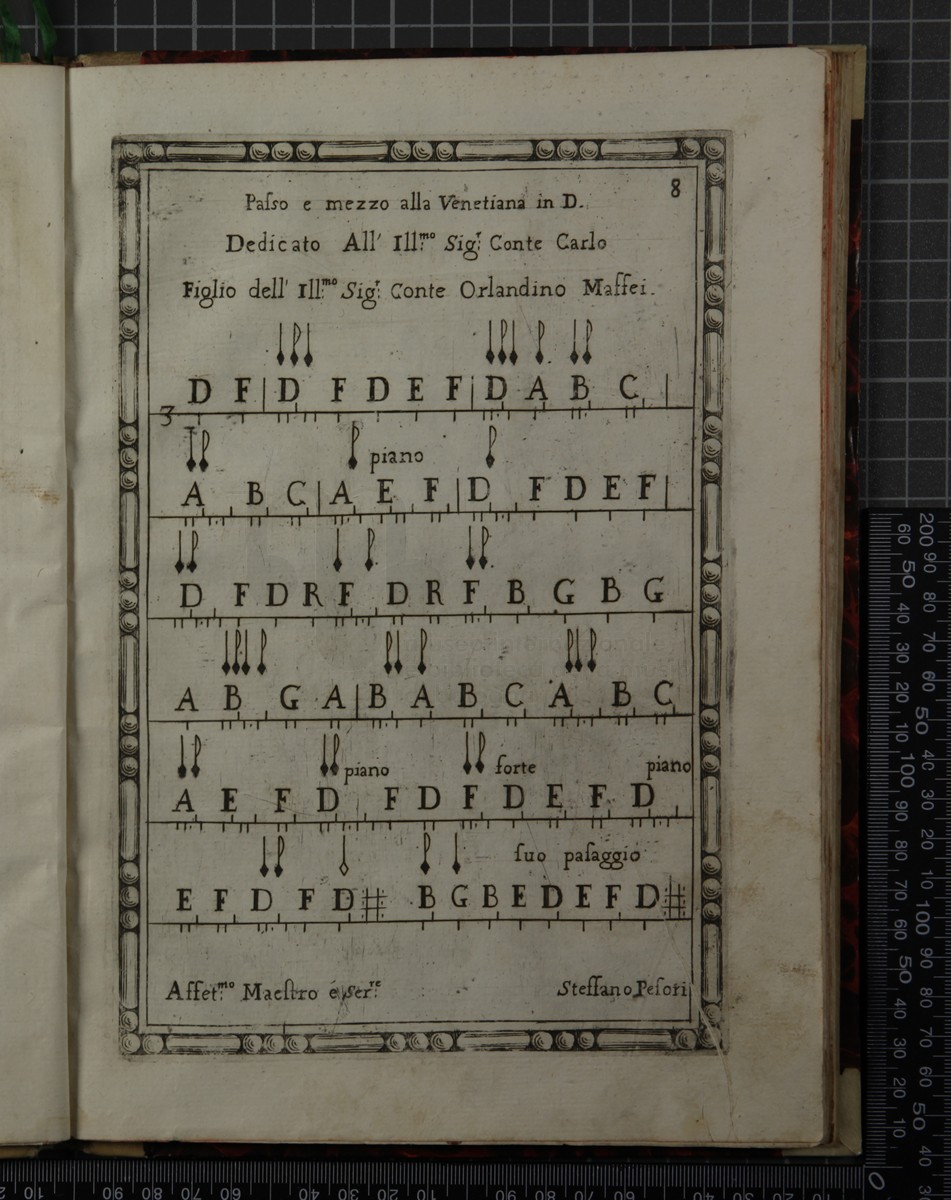 8
Passo e mezzo alla Venetiana in D.
Dedicato All' Ill.mo Sig.r Conte Carlo
Figlio dell' Ill.mo Sig.r Conte Orlandino Maffei.
D F | D F D E F | D A B C |
3
piano
A B C | A E F | D F D E F |
D F D R F D R F B G B G
A B G A | B A B C A B C
piano forte piano
A E F D F D F D E F D
suo pasaggio
E F D F D # B G B E D E F D #
Affet.mo Maestro e Ser.re Steffano Pesori
200 90 80 70 60 50 40 30 20 10 100 90 80 70 60 50 40 30 20 10 100 90 80 70 60 50 40
60 50 40 30 20 10 100 90 80 70 60 50 40 30 20 10 0